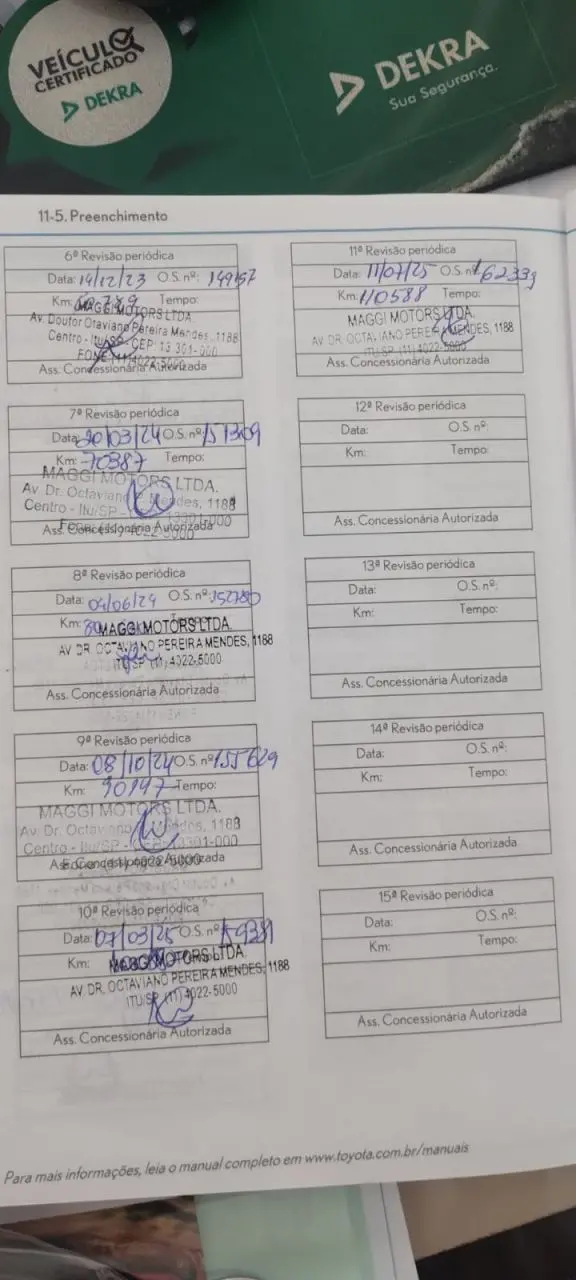 VEÍCULO
CERTIFICADO
DEKRA
DEKRA
Sua Segurança.
11-5. Preenchimento
6ª Revisão periódica
Data: 14/12/23 O.S. nº: 149157
Km: Tempo:
MAGGI MOTORS LTDA
Av. Doutor Otaviano Pereira Mendes, 1188
Centro - Itu/SP - CEP: 13 301-000
FONE (11) 4022-5000
Ass. Concessionária Autorizada
7ª Revisão periódica
Data: 20/03/24 O.S. nº: 151309
Km: 70387 Tempo:
MAGGI MOTORS LTDA.
Av. Dr. Octaviano P. Mendes, 1188
Centro - Itu/SP - 13301-000
Ass. Concessionária Autorizada
8ª Revisão periódica
Data: 04/06/24 O.S. nº: 152780
Km:
MAGGI MOTORS LTDA.
AV DR. OCTAVIANO PEREIRA MENDES, 1188
ITU/SP (11) 4022-5000
Ass. Concessionária Autorizada
9ª Revisão periódica
Data: 08/10/24 O.S. nº: 155629
Km: 90197 Tempo:
MAGGI MOTORS LTDA.
Av. Dr. Octaviano Mendes, 1188
Centro - Itu/SP - CEP: 13301-000
Ass. Concessionária Autorizada
10ª Revisão periódica
Data: 07/03/25 O.S. nº: 159381
Km:
MAGGI MOTORS LTDA.
AV. DR. OCTAVIANO PEREIRA MENDES, 1188
ITU/SP (11) 4022-5000
Ass. Concessionária Autorizada
11ª Revisão periódica
Data: 11/07/25 O.S. nº: 162339
Km: 110588 Tempo:
MAGGI MOTORS LTDA.
AV DR. OCTAVIANO PEREIRA MENDES, 1188
ITU/SP (11) 4022-5000
Ass. Concessionária Autorizada
12ª Revisão periódica
Data: O.S. nº:
Km: Tempo:
Ass. Concessionária Autorizada
13ª Revisão periódica
Data: O.S. nº:
Km: Tempo:
Ass. Concessionária Autorizada
14ª Revisão periódica
Data: O.S. nº:
Km: Tempo:
Ass. Concessionária Autorizada
15ª Revisão periódica
Data: O.S. nº:
Km: Tempo:
Ass. Concessionária Autorizada
Para mais informações, leia o manual completo em www.toyota.com.br/manuais